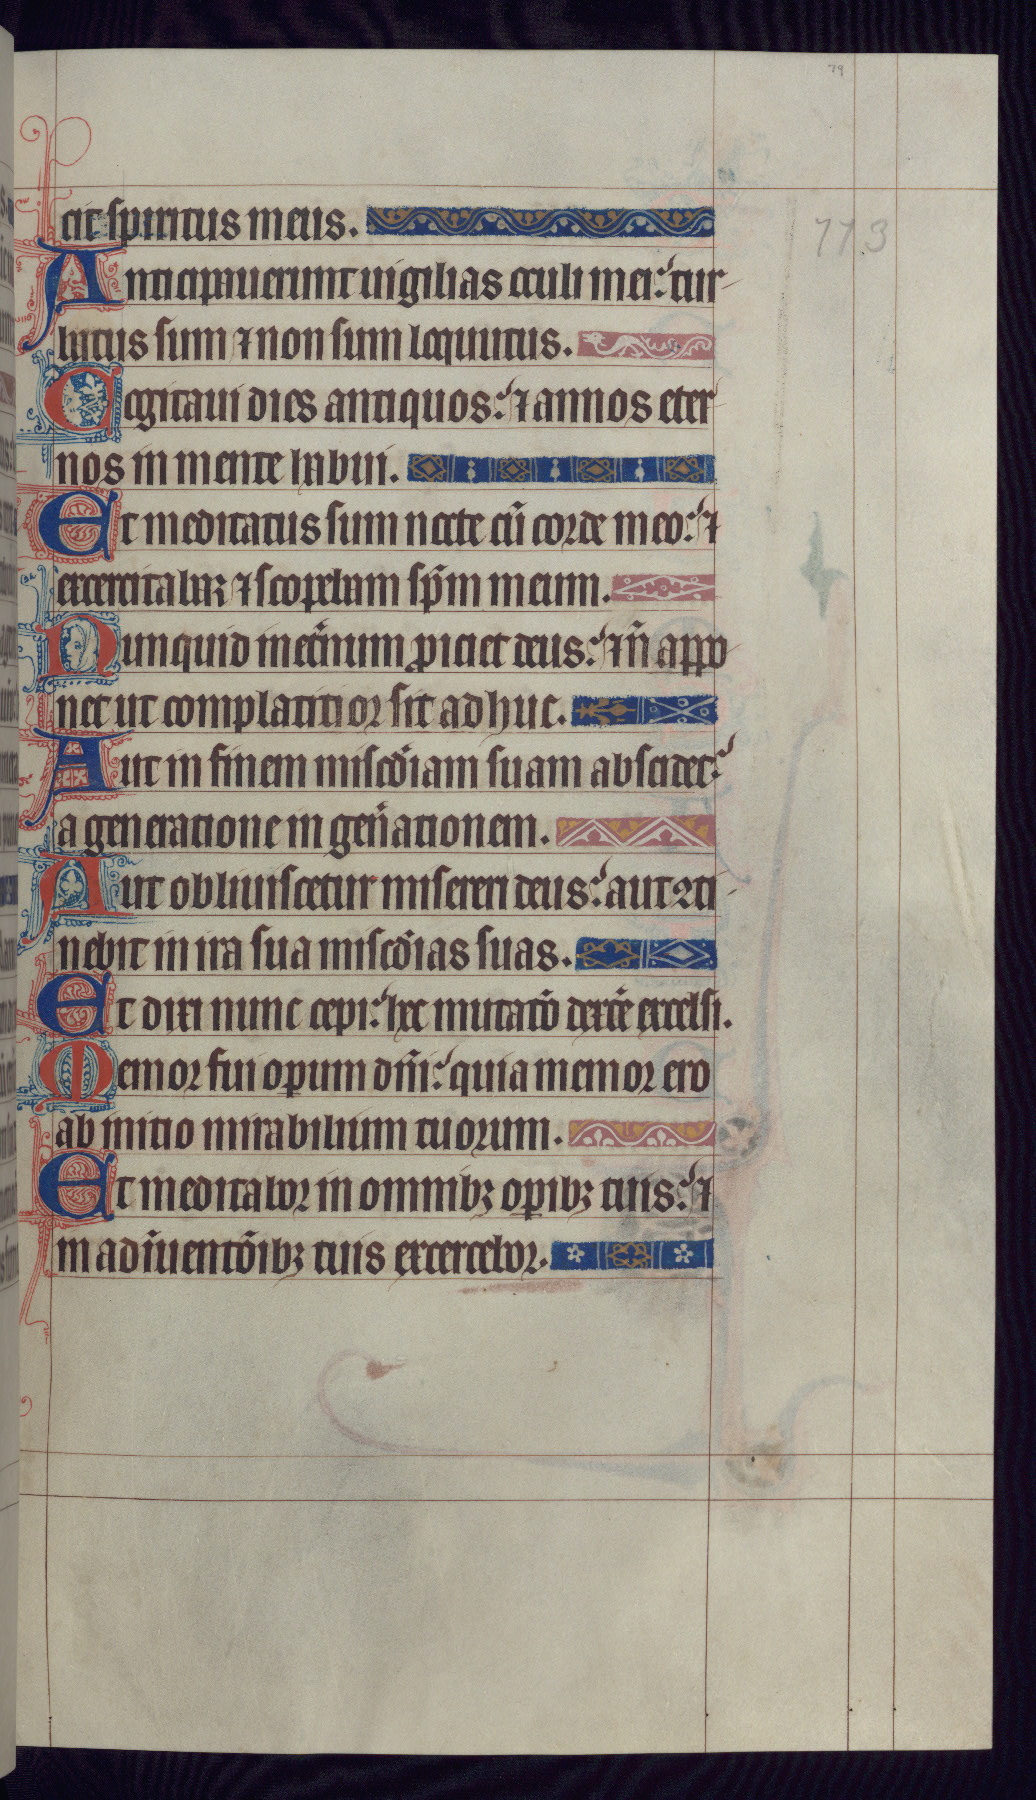 79
113
cit spiritus meus.
Anticipauerunt uigilias oculi mei: tur-
batus sum ⁊ non sum loquutus.
Cogitaui dies antiquos: ⁊ annos eter
nos in mente habui.
Et meditatus sum nocte cū corde meo: ⁊
excercitabar ⁊ scopebam sp̄m meum.
Nunquid inet̄num ꝓiciet deus: ⁊ n̄ appo
net ut complacitior sit adhuc.
Aut in finem misc̄diam suam abscidet:
a generatione in gen̄ationem.
Aut obliuiscetur misereri deus: aut ꝯti-
nebit in ira sua misc̄dias suas.
Et dixi nunc cepi: hec mutatō dext̄e excelsi.
Memor fui oꝑum dn̄i: quia memor ero
ab initio mirabilium tuorum.
Et meditabor in omnibꝫ oꝑibꝫ tuis: ⁊
in adīuentōibꝫ tuis excercebor.